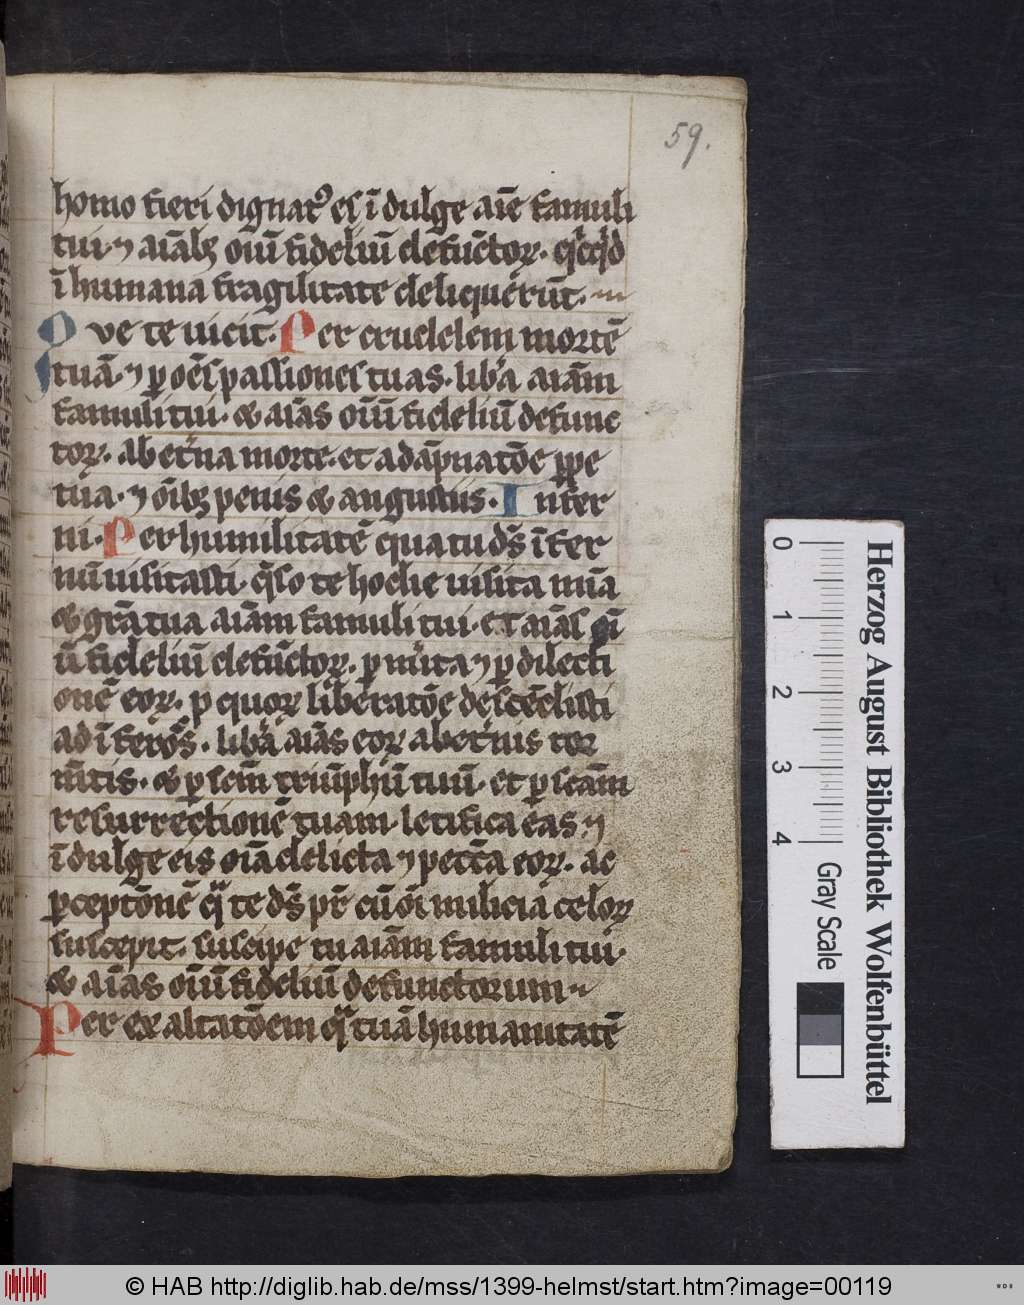 59.
homo fieri dignatꝰ es īdulge aīe famuli
tui ⁊ aīabꝫ oīū fideliū defūctoꝝ. qͥcqͥd
ī humana fragilitate deliquerūt.
Que te uicit. Per crudelem mortē
tuā. ⁊ ꝑ oēs passiones tuas. libͣa aīam
famuli tui. & aīas oīū fideliū defunc
toꝝ. ab etͥna morte. et a dāpnatōe ꝑpe
tua. ⁊ oībꝫ penis & angustiis. Infer
ni. Per humilitatē qua tu ds̄ īfer
nū uisitasti. q̄so te hodie uisita mīa
& grā tua aīam famuli tui. et aīas oī
ū fideliū defūctoꝝ. ꝑ mͥita ⁊ ꝑ dilecti
onē eoꝝ. ꝓ quoꝝ liberatōe descēdisti
ad īferos. libͣa aīas eoꝝ ab etͥnis tor
mͣtis. & ꝑ scm̄ triūphū tuū. et ꝑ scām
resurrectionē tuam letifica eas ⁊
īdulge eis oīa delicta ⁊ pecc̄a eoꝝ. ac
ꝑceptōnē qͣ te ds̄ pr̄ cū oī miliciā celoꝝ
suscepit. suscipe tu aīam famuli tui.
& aīas oīū fideliū defunctorum
Per exaltatōem qͣ tuā humanitatē
0 1 2 3 4
Gray Scale
Herzog August Bibliothek Wolfenbüttel
© HAB http://diglib.hab.de/mss/1399-helmst/start.htm?image=00119